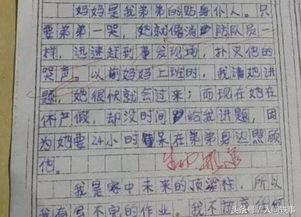 妈妈是我弟弟的贴身仆人。只
要弟弟一哭，她就像消防队员一
样，迅速赶到事发现场，扑灭他的
哭声。以前妈妈上班时，我请她讲
题，她很快就会过来；而现在她在
休产假，却没时间给我讲题，因
为她要24小时呆在弟弟身边照顾
他。
我是家中未来的顶梁柱，所以
我有写不完的作业，我不
头条